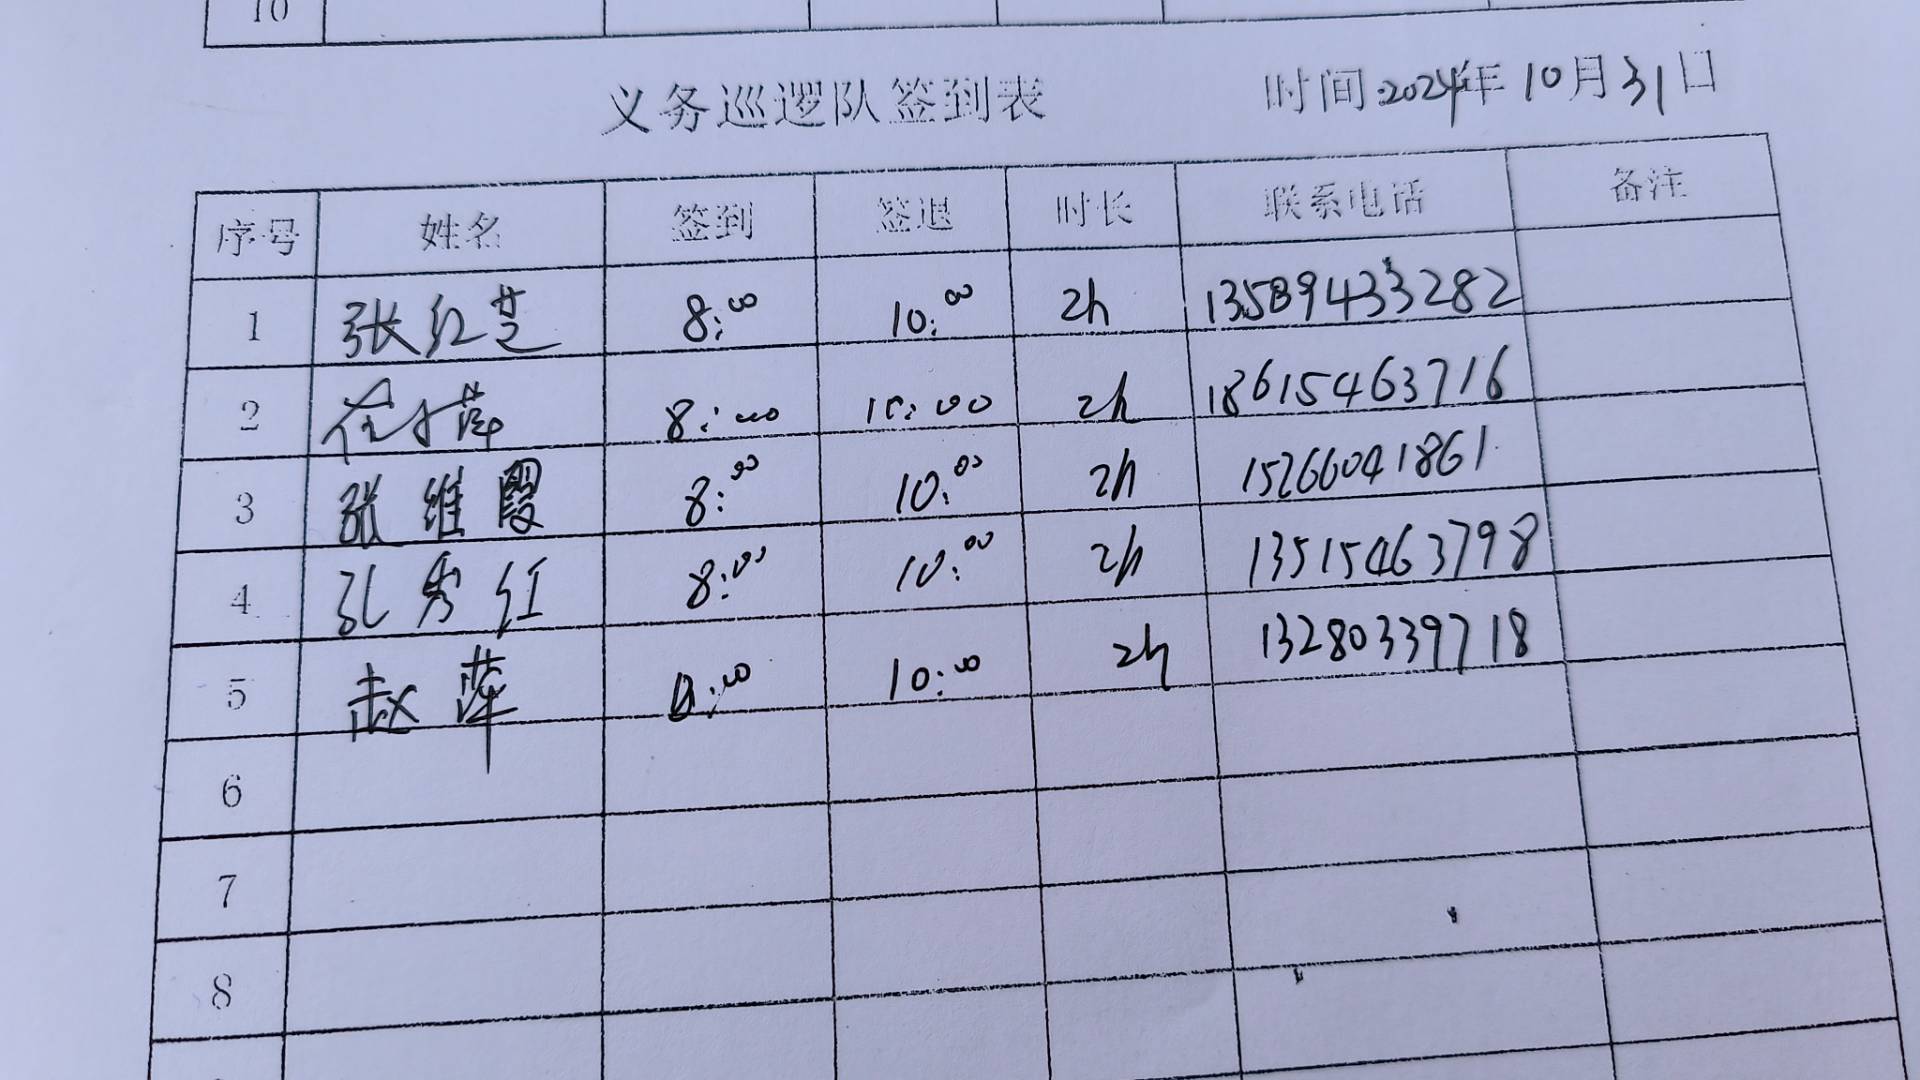 10
义务巡逻队签到表 时间:2024年10月31日
序号 姓名 签到 签退 时长 联系电话 备注
1 张红芝 8:00 10:00 2h 13589433282
2 8:00 10:00 2h 18615463716
3 张维霞 8:00 10:00 2h 15266041861
4 孔秀红 8:00 10:00 2h 13515463798
5 赵萍 8:00 10:00 2h 13280339718
6
7
8